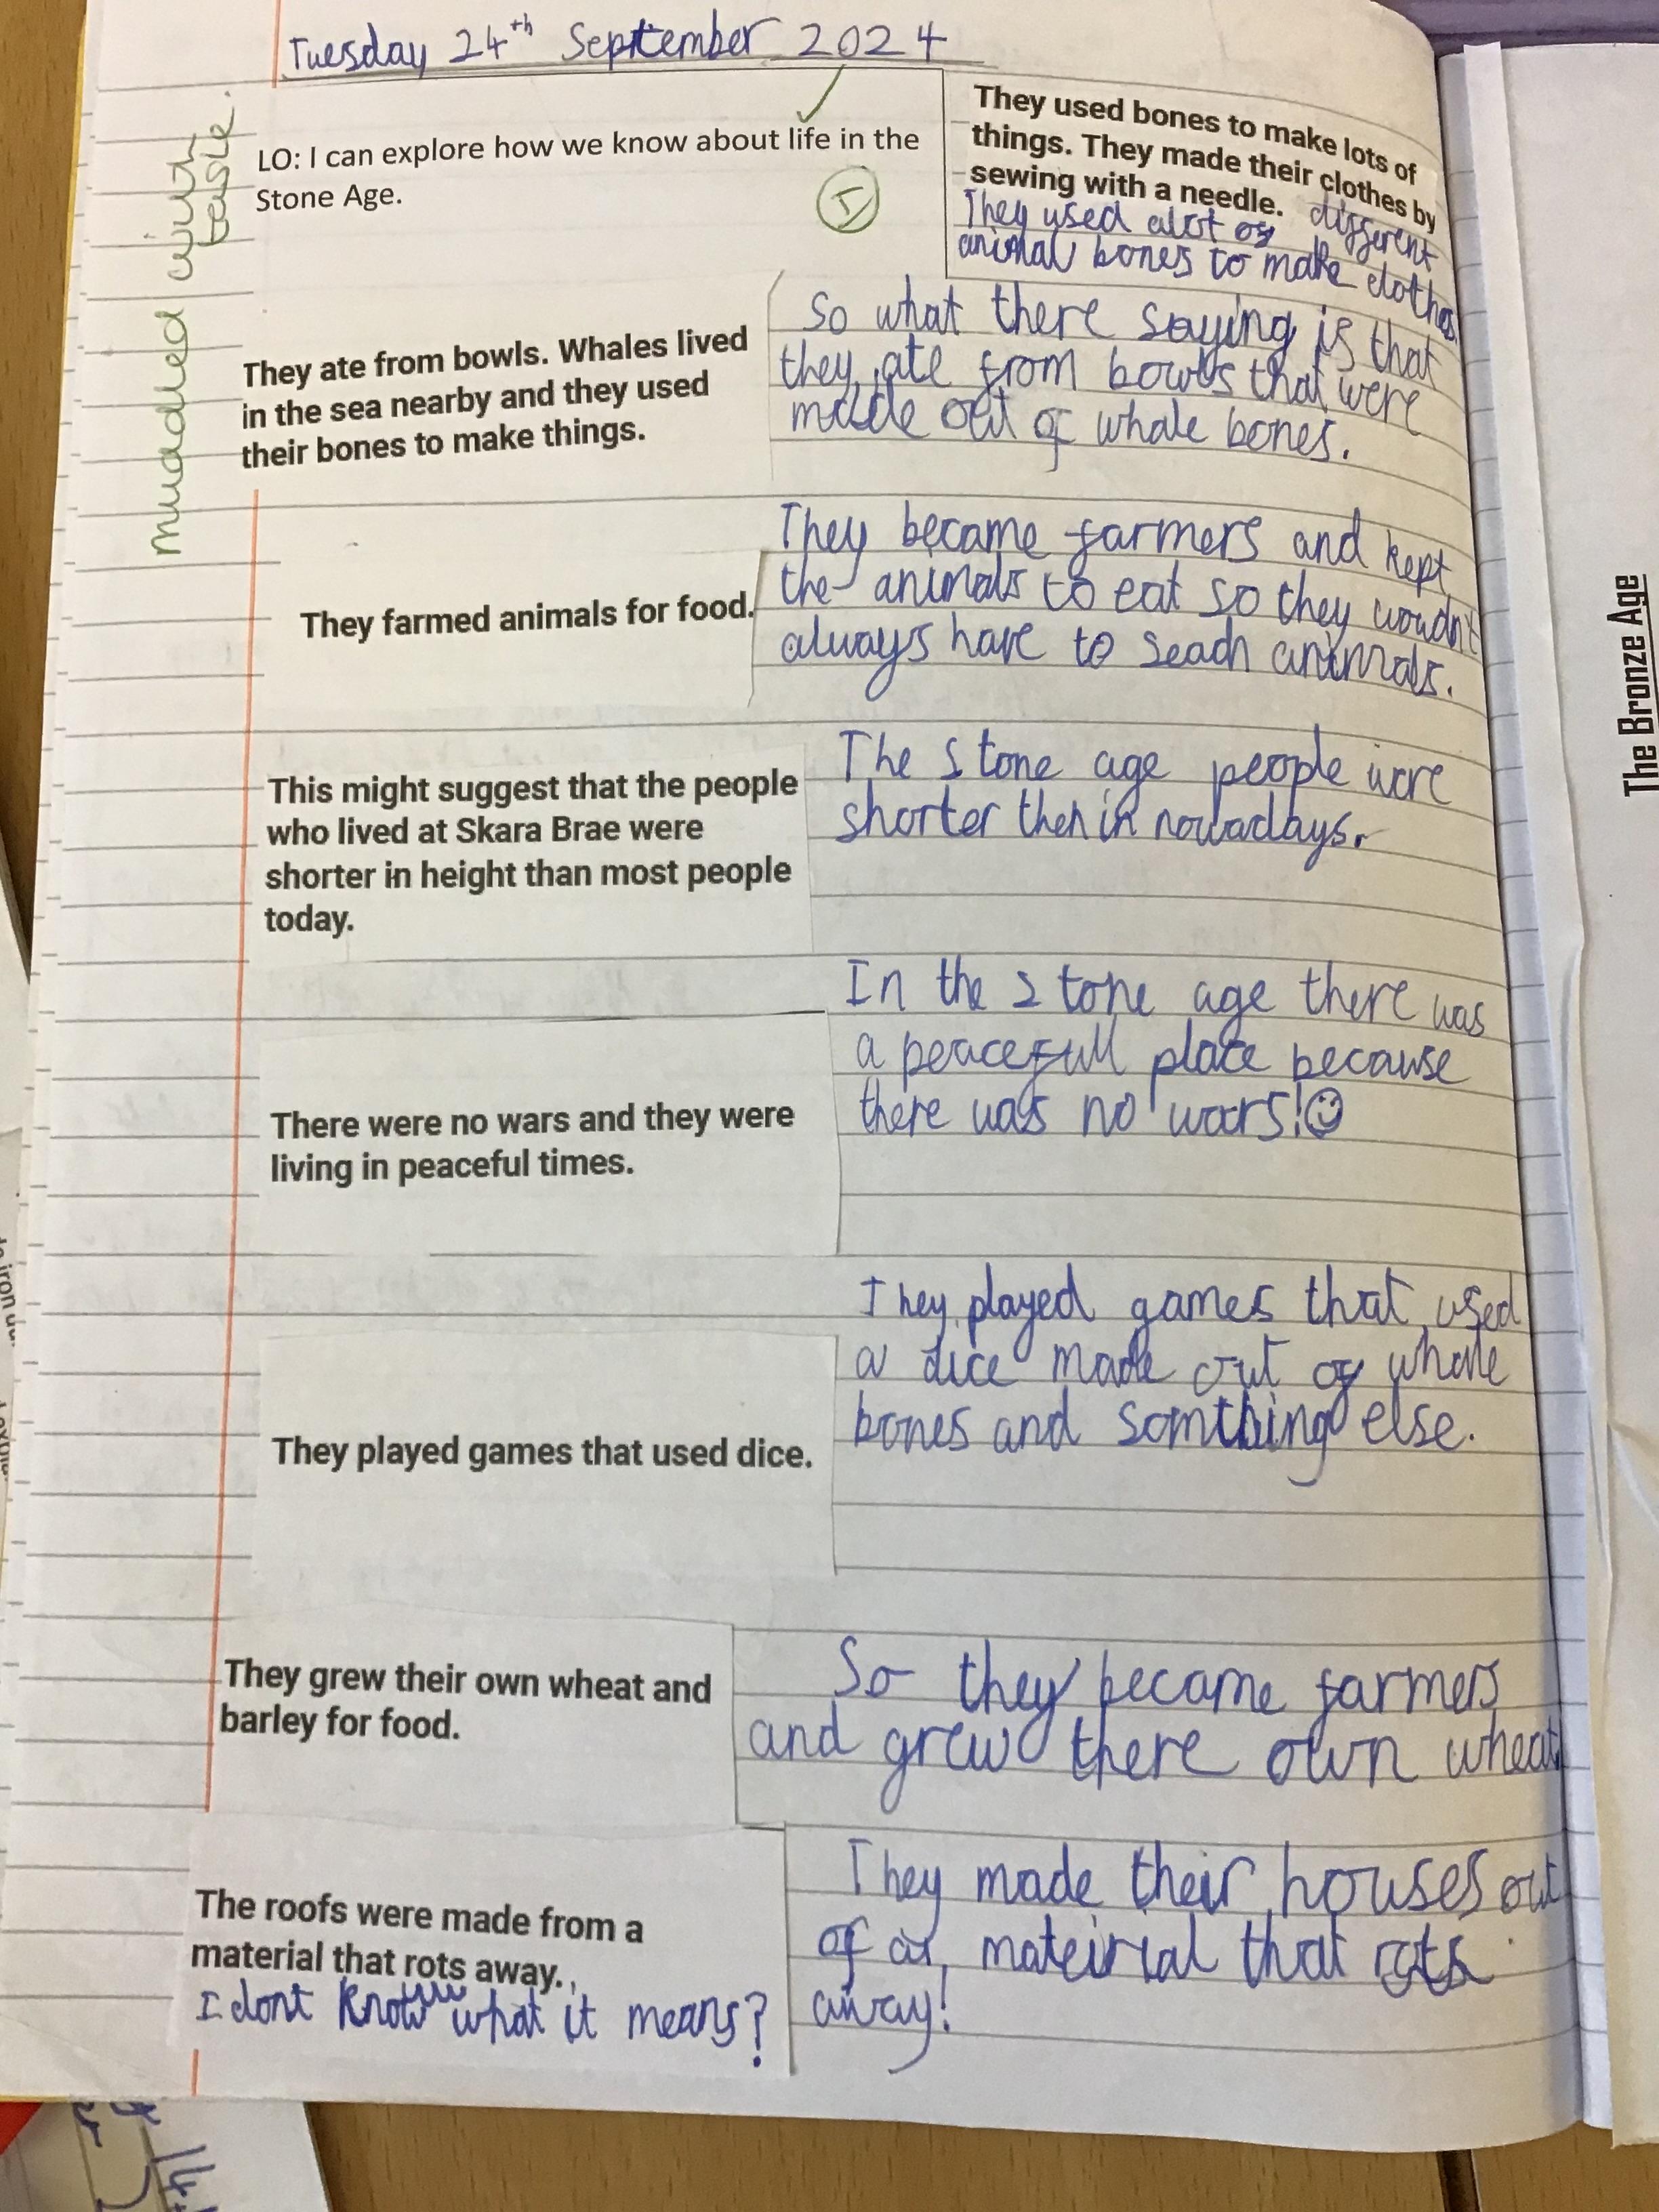 Tuesday 24th September 2024
LO: I can explore how we know about life in the
Stone Age.
I
muddled with
They used bones to make lots of
things. They made their clothes by
sewing with a needle.
They used alot of different
animal bones to make clothes
They ate from bowls. Whales lived
in the sea nearby and they used
their bones to make things.
So what there saying is that
they ate from bowls that were
made out of whale bones.
They farmed animals for food.
They became farmers and kept
the animals to eat so they woudn't
always have to seach animals.
This might suggest that the people
who lived at Skara Brae were
shorter in height than most people
today.
The Stone age people were
shorter then in nowadays.
There were no wars and they were
living in peaceful times.
In the Stone age there was
a peacefull place because
there was no wars!☺
They played games that used dice.
They played games that used
a dice made out of whale
bones and somthing else.
They grew their own wheat and
barley for food.
So they became farmers
and grew there own wheat
The roofs were made from a
material that rots away.
I dont know what it means?
They made their houses out
of a mateirial that rots
away!
The Bronze Age